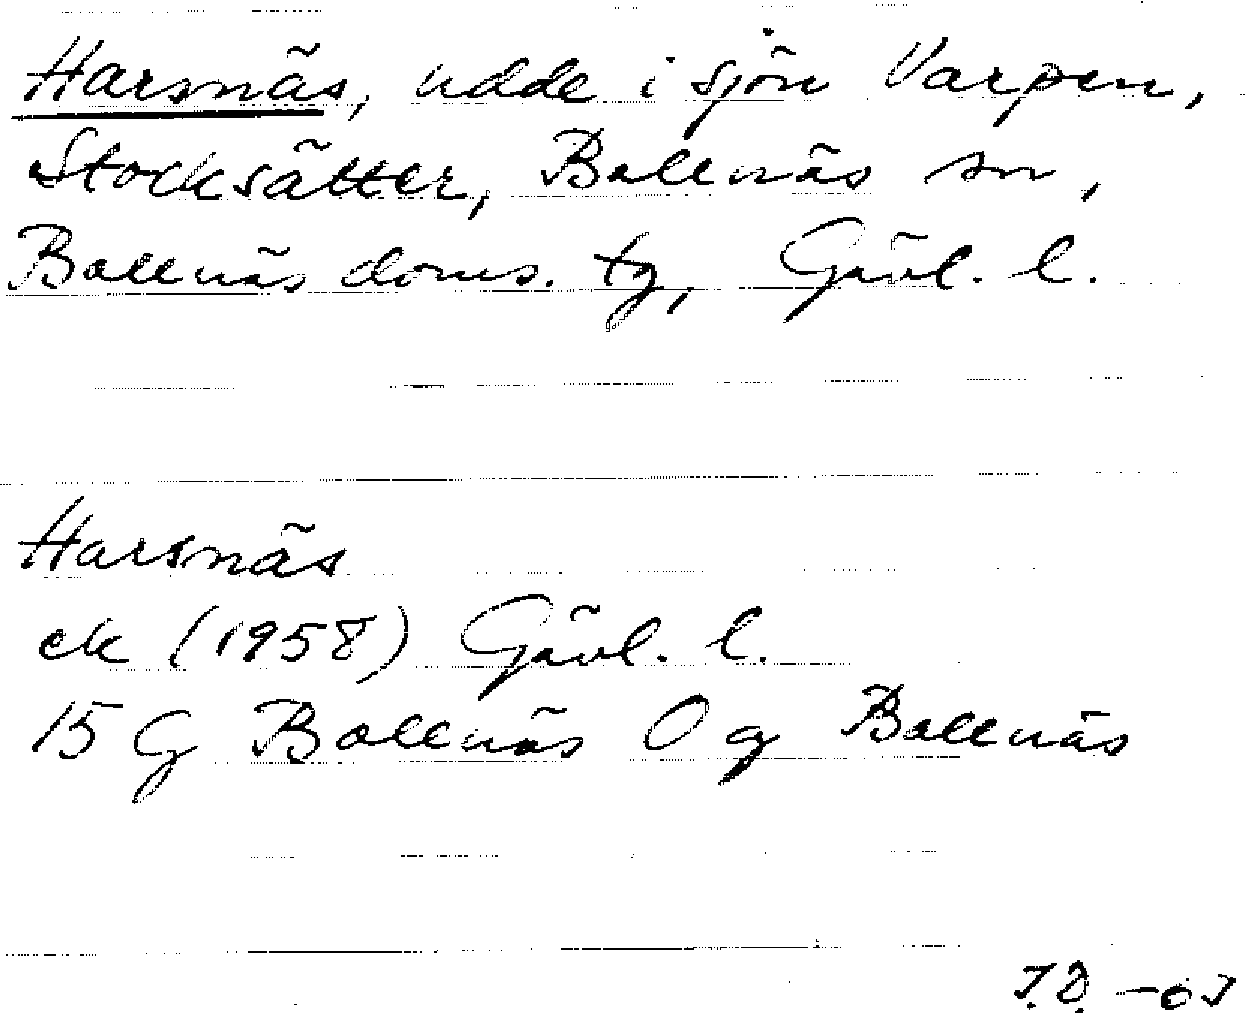 Harsnäs, udde i sjön Varpen,
Stocksätter, Bollnäs sn,
Bollnäs doms. tg, Gävl. l.
Harsnäs
ek (1958) Gävl. l.
15 G Bollnäs O g Bollnäs